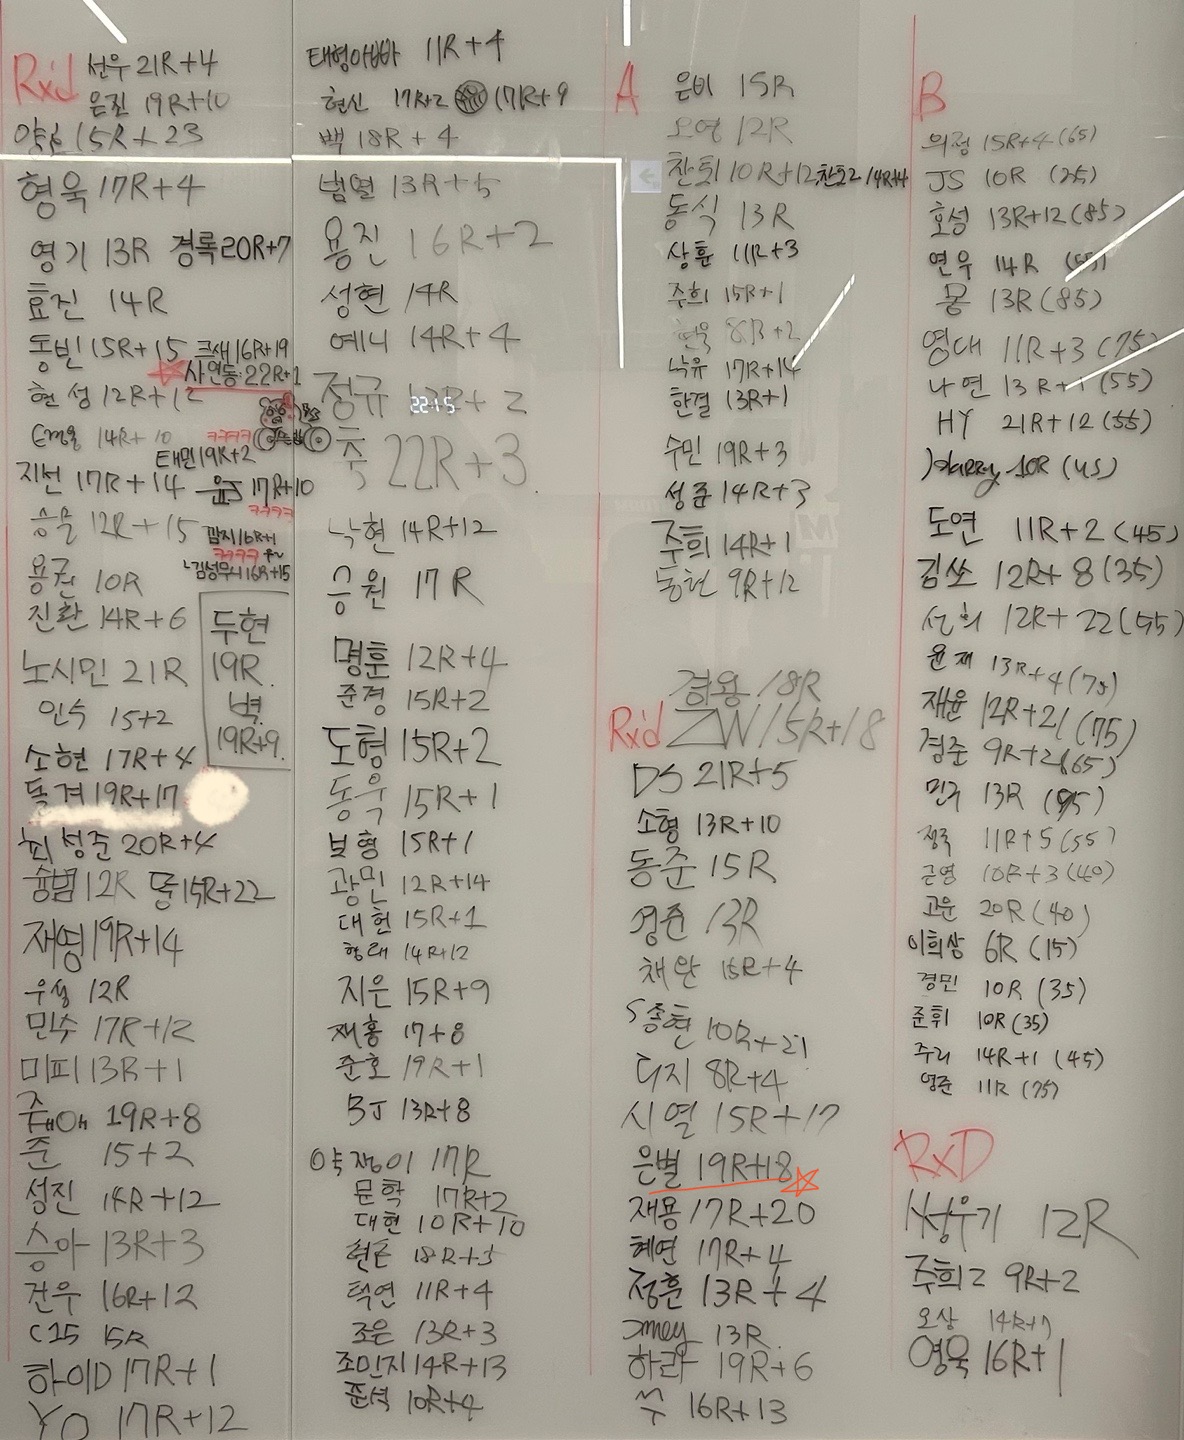 Rx'd 선우 21R+4
은진 19R+10
15R+23
형욱 17R+4
영기 13R 경록 20R+7
효진 14R
동빈 15R+15 16R+19
☆ 사연동:22R+1
현성 12R+12
14R+10 ㅋㅋㅋㅋ
태민 19R+2
지선 17R+14 윤J 17R+10
ㅋㅋㅋㅋ
승물 12R+15 깜지 16R+1
ㅋㅋㅋㅋ
용권 10R 김성무 16R+15
진환 14R+6
두현
19R
벽
19R+9
노시민 21R
인수 15+2
소현 17R+4
19R+17
최성준 20R+4
12R 똥 15R+22
재영 19R+14
우성 12R
민수 17R+12
미피 13R+1
19R+8
준 15+2
성진 14R+12
승아 13R+3
건우 16R+12
C15 15R
하이D 17R+1
YO 17R+12
태형아빠 11R+4
현신 17R+2 17R+9
백 18R+4
범열 13R+5
용진 16R+2
성현 14R
예니 14R+4
정규 R+2
축 22R+3
낙현 14R+12
승원 17R
명훈 12R+4
준경 15R+2
도형 15R+2
동욱 15R+1
보형 15R+1
광민 12R+14
대헌 15R+1
형래 14R+12
지은 15R+9
재홍 17+8
준호 19R+1
BJ 13R+8
약쟁이 17R
문학 17R+2
대현 10R+10
18R+3
택연 11R+4
조은 13R+3
조민지 14R+13
준석 10R+4
A 은비 15R
오영 12R
찬퇴 10R+12 찬호2 14R+4
동식 13R
상훈 11R+3
주희 15R+1
현욱 8R+2
낙유 17R+14
한결 13R+1
수민 19R+3
성준 14R+3
주희 14R+1
동현 9R+12
경용 18R
Rx'd ZW 15R+18
DS 21R+5
소형 13R+10
동준 15R
영준 13R
채완 15R+4
S종현 10R+21
더지 8R+4
시열 15R+17
은별 19R+18 ☆
재용 17R+20
혜연 17R+4
정훈 13R+4
13R
하라 19R+6
쑤 16R+13
B
의정 15R+4 (65)
JS 10R (25)
호성 13R+12 (85)
연우 14R (55)
몽 13R (85)
영대 11R+3 (75)
나연 13R+1 (55)
HY 21R+12 (55)
Harry 10R (45)
도연 11R+2 (45)
김쏘 12R+8 (35)
선희 12R+22 (55)
윤재 13R+4 (75)
재윤 12R+21 (75)
경준 9R+2 (65)
민구 13R (95)
정국 11R+5 (55)
근영 10R+3 (40)
고운 20R (40)
이희상 6R (15)
경민 10R (35)
준휘 10R (35)
주리 14R+1 (45)
영준 11R (75)
RxD
12R
주희2 9R+2
오상 14R+7
영욱 16R+1